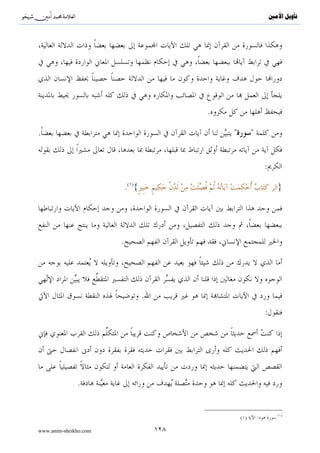 تأويل الأمين
العلامة محمد أمين شيخو
وهكذا فالسورة من القرآن إنما هي تلك الآيات المجموعة إلى بعضها بعضاً وذات الدلالة العالية،
فهي في ترابط آياتها ببعضها بعضاً، وهي في إحكام نظمها وتسلسل المعاني الواردة فيها، وهي في
دورانها حول هدف وغاية واحدة وكون ما فيها من الدلالة حصناً حصيناً يحفظ الإنسان الذي
يلجأ إلى العمل بها من الوقوع في المصائب والمكاره وهي في ذلك كله أشبه بالسور يحيط بالمدينة
فيحفظ أهلها من كل مكروه.
ومن كلمة "سورة" يتبيَّن لنا أن آيات القرآن في السورة الواحدة إنما هي مترابطة في بعضها بعضاً.
فكل آية من آياته مرتبطة أوثق ارتباط بما قبلها، مرتبطة بما بعدها، قال تعالى مشيراً إلى ذلك بقوله
الكريم:
{الر كِتَابٌ أُحْكِمَتْ آيَاتُهُ ثُمَّ فُصِّلَتْ مِنْ لَدُنْ حَكِيمٍ خَبِيرٍ}(١).
فمن وجد هذا الترابط بين آيات القرآن في السورة الواحدة، ومن وجد إحكام الآيات وارتباطها
ببعضها بعضاً، ثم وجد ذلك التفصيل، ومن أدرك تلك الدلالة العالية وما ينتج عنها من النفع
والخير للمجتمع الإنساني، فقد فهم تأويل القرآن الفهم الصحيح.
أما الذي لا يدرك من ذلك شيئاً فهو بعيد عن الفهم الصحيح، وتأويله لا يُعتمد عليه بوجه من
الوجوه ولا نكون مغالين إذا قلنا أن الذي يفسِّر القرآن ذلك التفسير المتقطِّع فلا يبيِّن المراد الإلۤهي
فيما ورد في الآيات المتشابهة إنما هو غير قريب من الله. وتوضيحاً لهذه النقطة نسوق المثال الآتي
فنقول:
إذا كنتُ أسمع حديثاً من شخص من الأشخاص وكنت قريباً من المتكلِّم ذلك القرب المعنوي فإني
أفهم ذلك الحديث كله وأرى الترابط بين فقرات حديثه فقرة بفقرة دون أدنى انفصال حتى أن
القصص التي يتضمنها حديثه إنما وردت من تأييد الفكرة العامة أو لتكون مثالاً تفصيلياً على ما
ورد فيه والحديث كله إنما هو وحدة متَّصلة يُهدف من ورائه إلى غاية معيَّنة هادفة.
(١) سورة هود: الآية (١)
www.amin-sheikho.com
١٢٨